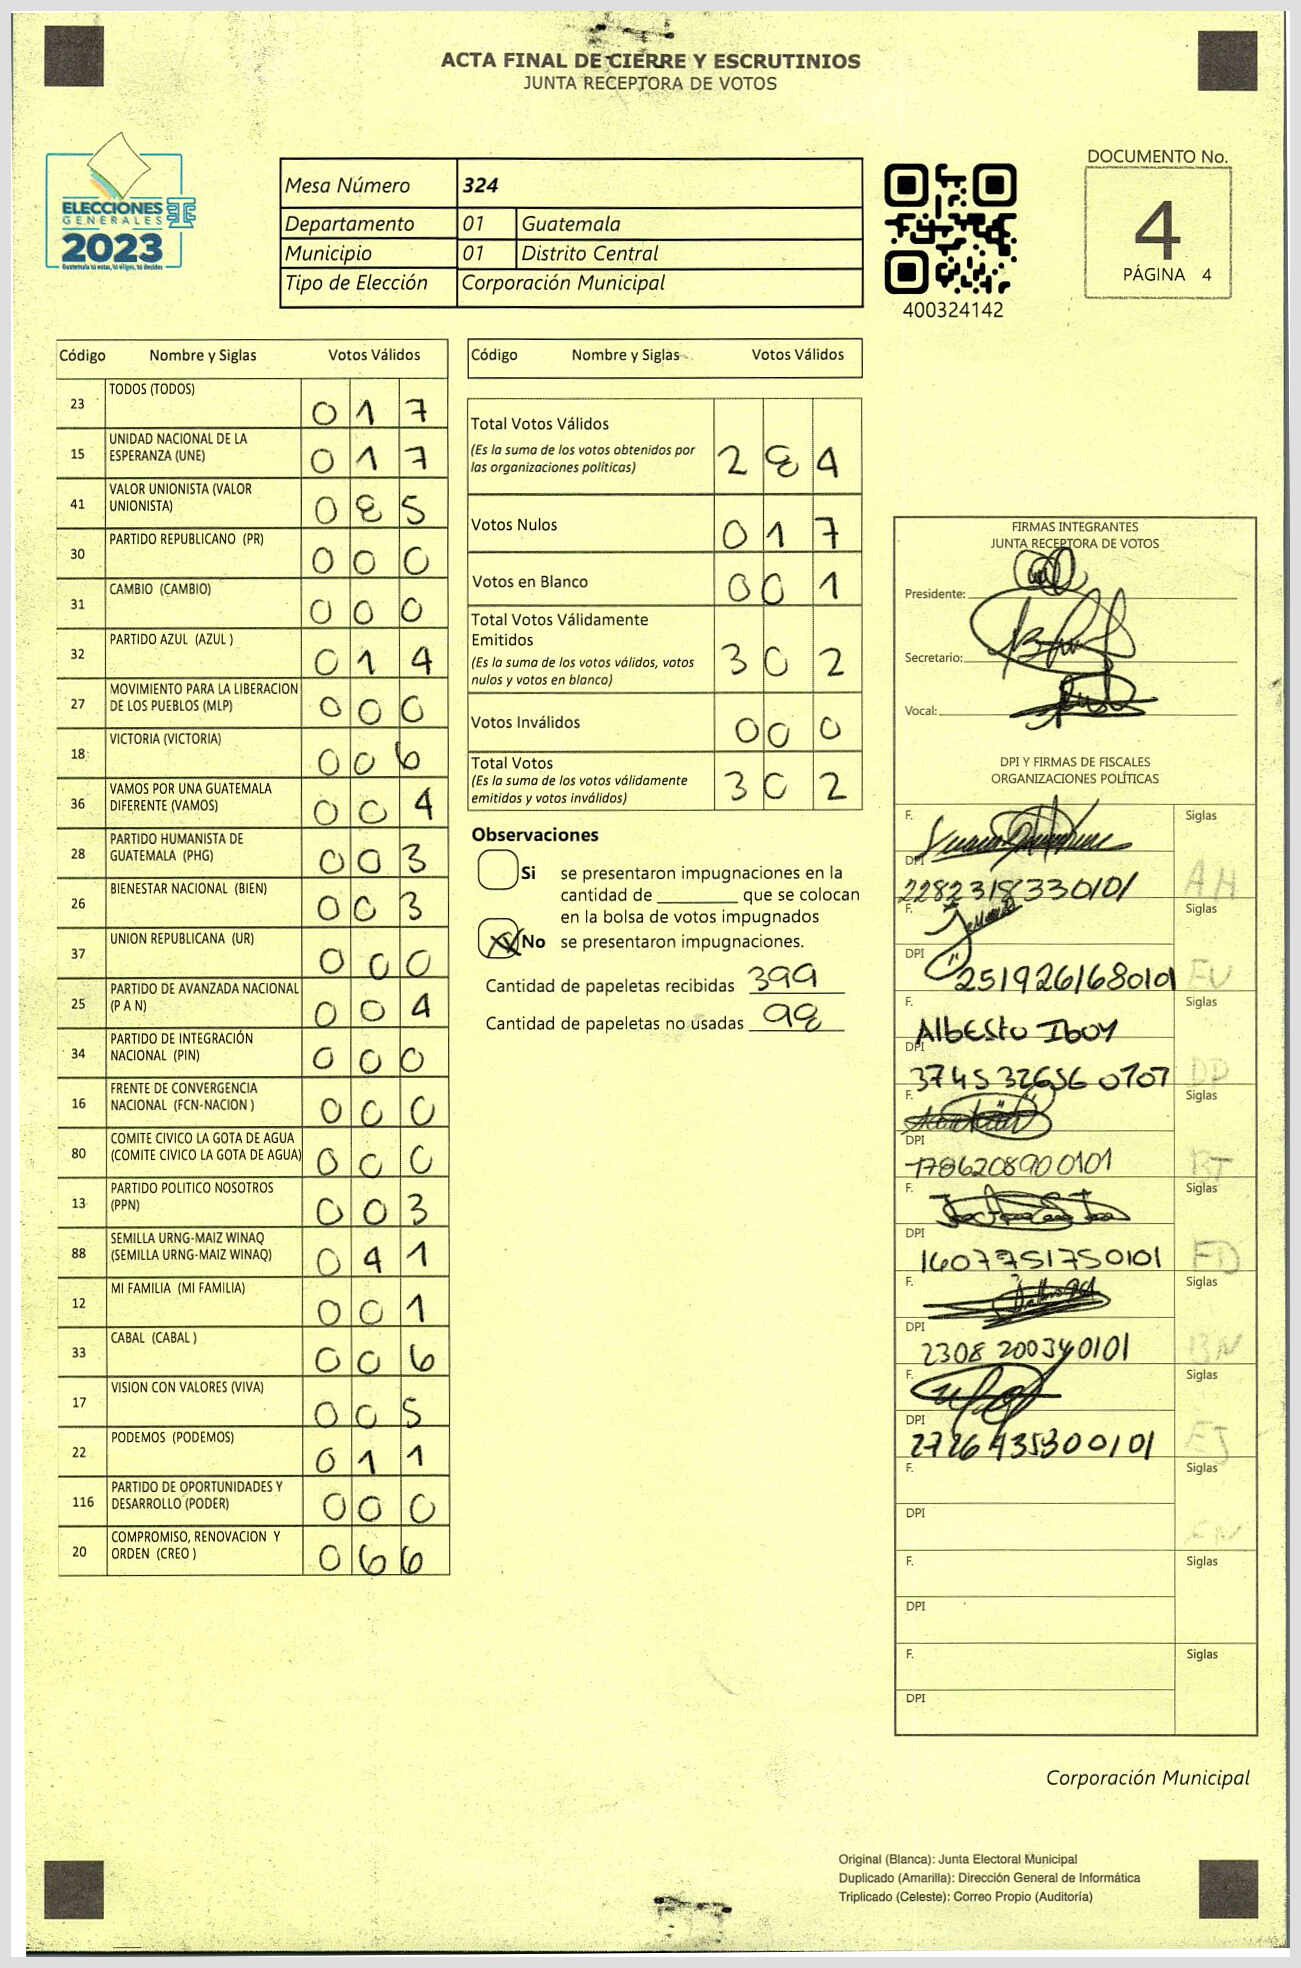 ACTA FINAL DE CIERRE Y ESCRUTINIOS
JUNTA RECEPTORA DE VOTOS
ELECCIONES
GENERALES
2023
Mesa Número 324
Departamento 01 Guatemala
Municipio 01 Distrito Central
Tipo de Elección Corporación Municipal
400324142
DOCUMENTO No.
4
PÁGINA 4
Código Nombre y Siglas Votos Válidos
23 TODOS (TODOS) 0 1 7
15 UNIDAD NACIONAL DE LA ESPERANZA (UNE) 0 1 7
41 VALOR UNIONISTA (VALOR UNIONISTA) 0 8 5
30 PARTIDO REPUBLICANO (PR) 0 0 0
31 CAMBIO (CAMBIO) 0 0 0
32 PARTIDO AZUL (AZUL ) 0 1 4
27 MOVIMIENTO PARA LA LIBERACION DE LOS PUEBLOS (MLP) 0 0 0
18 VICTORIA (VICTORIA) 0 0 6
36 VAMOS POR UNA GUATEMALA DIFERENTE (VAMOS) 0 0 4
28 PARTIDO HUMANISTA DE GUATEMALA (PHG) 0 0 3
26 BIENESTAR NACIONAL (BIEN) 0 0 3
37 UNION REPUBLICANA (UR) 0 0 0
25 PARTIDO DE AVANZADA NACIONAL (P A N) 0 0 4
34 PARTIDO DE INTEGRACIÓN NACIONAL (PIN) 0 0 0
16 FRENTE DE CONVERGENCIA NACIONAL (FCN-NACION ) 0 0 0
80 COMITE CIVICO LA GOTA DE AGUA (COMITE CIVICO LA GOTA DE AGUA) 0 0 0
13 PARTIDO POLITICO NOSOTROS (PPN) 0 0 3
88 SEMILLA URNG-MAIZ WINAQ (SEMILLA URNG-MAIZ WINAQ) 0 4 1
12 MI FAMILIA (MI FAMILIA) 0 0 1
33 CABAL (CABAL ) 0 0 6
17 VISION CON VALORES (VIVA) 0 0 5
22 PODEMOS (PODEMOS) 0 1 1
116 PARTIDO DE OPORTUNIDADES Y DESARROLLO (PODER) 0 0 0
20 COMPROMISO, RENOVACION Y ORDEN (CREO ) 0 6 6
Código Nombre y Siglas Votos Válidos
Total Votos Válidos
(Es la suma de los votos obtenidos por
las organizaciones políticas) 2 8 4
Votos Nulos 0 1 7
Votos en Blanco 0 0 1
Total Votos Válidamente
Emitidos
(Es la suma de los votos válidos, votos
nulos y votos en blanco) 3 0 2
Votos Inválidos 0 0 0
Total Votos
(Es la suma de los votos válidamente
emitidos y votos inválidos) 3 0 2
Observaciones
Si se presentaron impugnaciones en la
cantidad de ________ que se colocan
en la bolsa de votos impugnados
No se presentaron impugnaciones.
Cantidad de papeletas recibidas 399
Cantidad de papeletas no usadas 98
FIRMAS INTEGRANTES
JUNTA RECEPTORA DE VOTOS
Presidente:
Secretario:
Vocal:
DPI Y FIRMAS DE FISCALES
ORGANIZACIONES POLÍTICAS
F. Siglas
DPI 2282318330101 AH
F. Siglas
DPI 2519261680101 EU
F. Alberto Iboy Siglas
DPI 3745326560707 DP
F. Siglas
DPI 1786208900101 BT
F. Siglas
DPI 1607751750101 FD
F. Siglas
DPI 2308200340101 BN
F. Siglas
DPI 2726435300101 EJ
F. Siglas
DPI
F. Siglas
DPI
F. Siglas
DPI
Corporación Municipal
Original (Blanca): Junta Electoral Municipal
Duplicado (Amarilla): Dirección General de Informática
Triplicado (Celeste): Correo Propio (Auditoría)